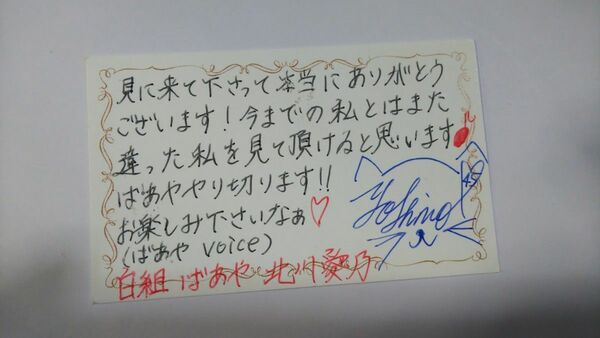 見に来て下さって本当にありがとう
ございます！今までの私とはまた
違った私を見て頂けると思います
ばあややり切ります!!
お楽しみ下さいなぁ♡
(ばあや voice)
Yoshino
白組 ばあや 北川愛乃